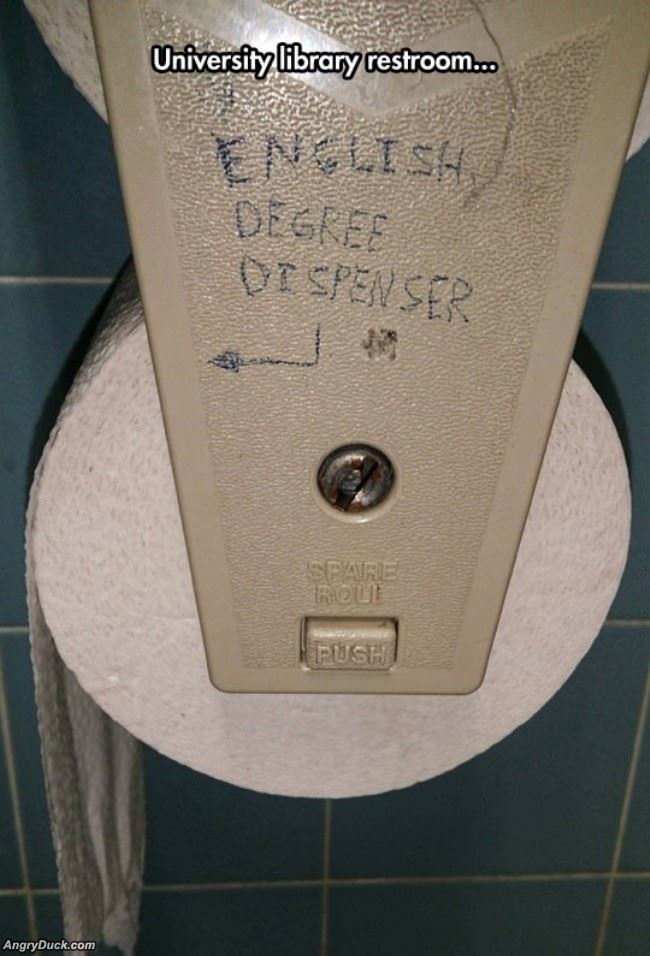 University library restroom...
ENGLISH
DEGREE
DISPENSER
SPARE
ROLL
PUSH
AngryDuck.com